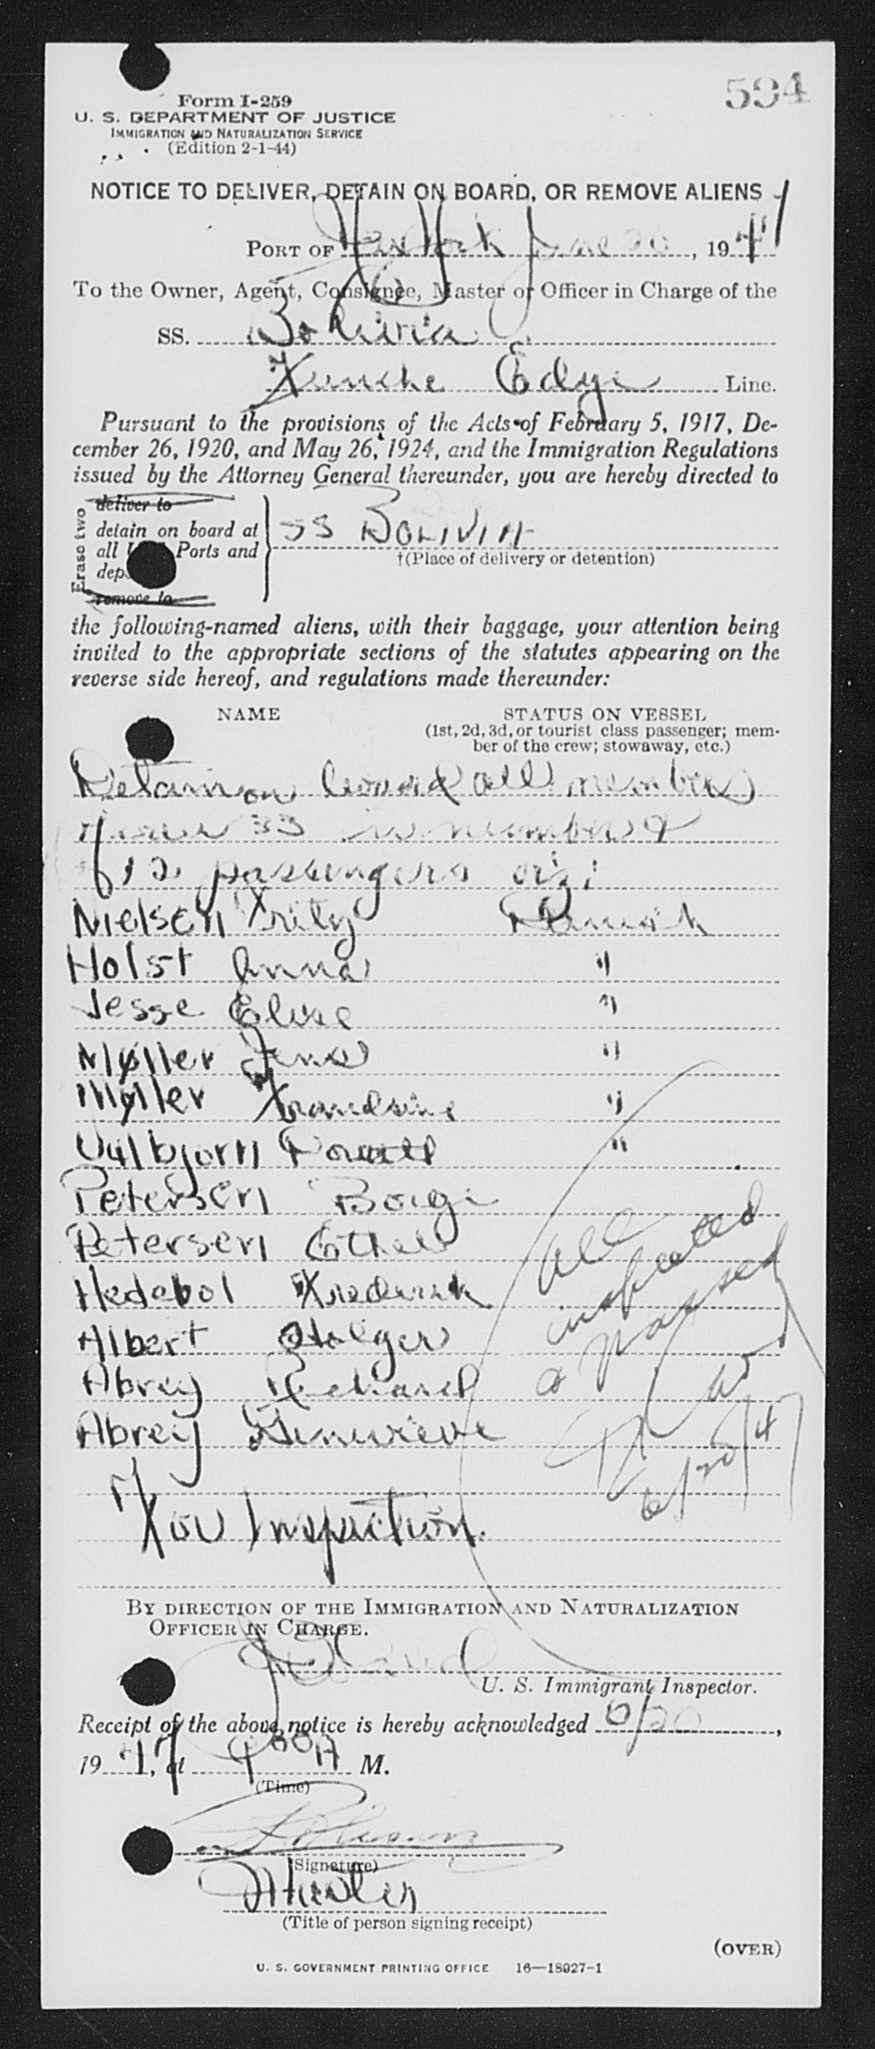 594
Form I-259
U. S. DEPARTMENT OF JUSTICE
IMMIGRATION AND NATURALIZATION SERVICE
(Edition 2-1-44)
NOTICE TO DELIVER, DETAIN ON BOARD, OR REMOVE ALIENS
PORT OF New York June 20, 1947
To the Owner, Agent, Consignee, Master or Officer in Charge of the
SS. Bolivia
Funche Edye Line.
Pursuant to the provisions of the Acts of February 5, 1917, De-
cember 26, 1920, and May 26, 1924, and the Immigration Regulations
issued by the Attorney General thereunder, you are hereby directed to
Erase two
deliver to
detain on board at
all Ports and
remove to
SS BOLIVIA
†(Place of delivery or detention)
the following-named aliens, with their baggage, your attention being
invited to the appropriate sections of the statutes appearing on the
reverse side hereof, and regulations made thereunder:
NAME STATUS ON VESSEL
(1st, 2d, 3d, or tourist class passenger; mem-
ber of the crew; stowaway, etc.)
Detain on board all members
33 in number &
12 passengers viz:
Nielsen Fritz Danish
Holst Anna "
Jesse Elise "
Møller Jens "
Møller Frandsine "
Valbjorn Povall "
Petersen Borge
Petersen Ethel
Hedebol Frederik
Albert Holger
Abrey Richard
Abrey Genevieve
For Inspection.
All
inspected
& passed
6/20/47
BY DIRECTION OF THE IMMIGRATION AND NATURALIZATION
OFFICER IN CHARGE.
U. S. Immigrant Inspector.
Receipt of the above notice is hereby acknowledged 6/20,
1947, at 900 A M.
(Time)
(Signature)
Master
(Title of person signing receipt)
(OVER)
U. S. GOVERNMENT PRINTING OFFICE 16—18027-1